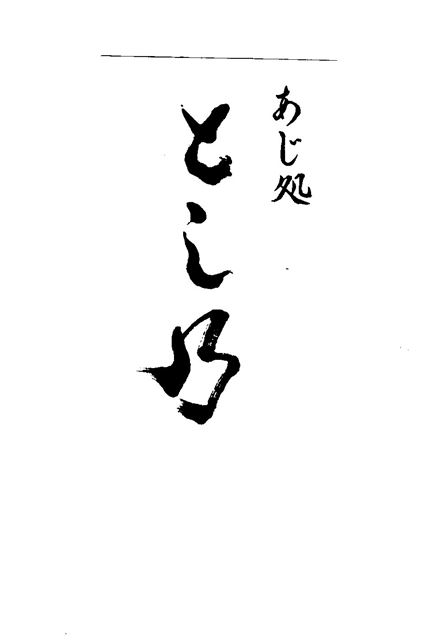 あじ処
とし乃